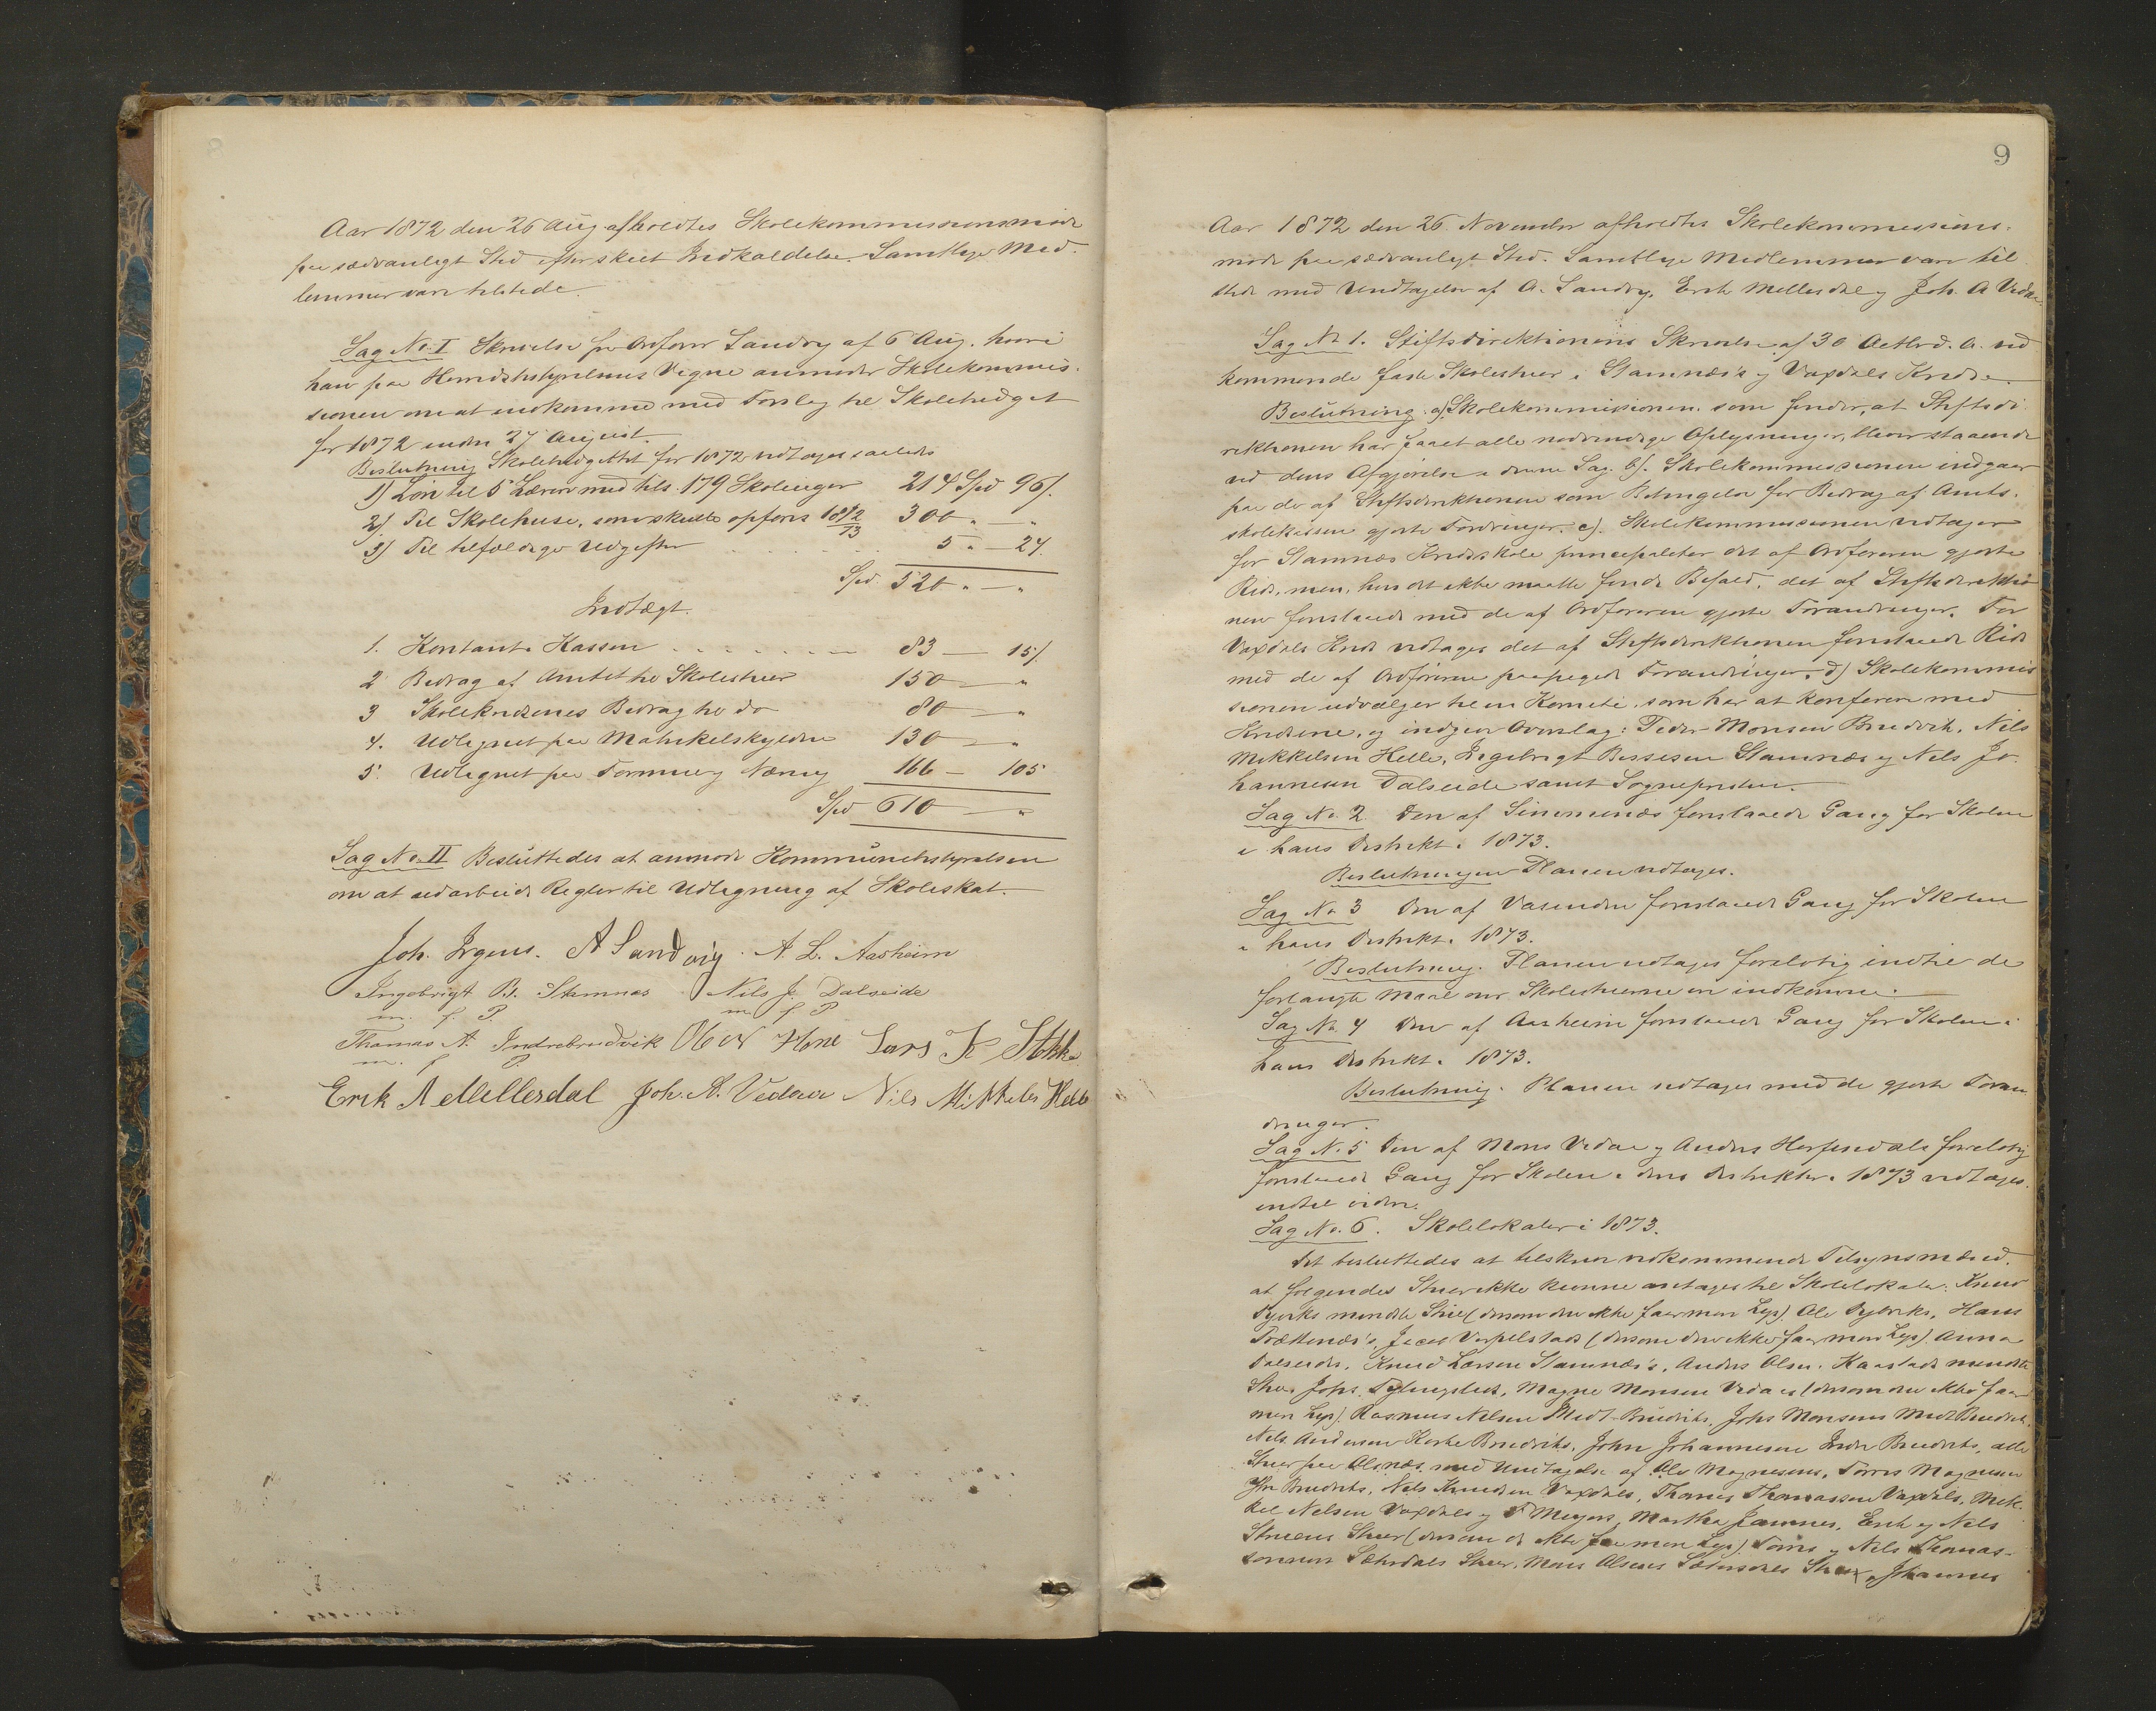 Aar 1872 den 26 Aug. afholdtes Skolekommissionsmöde
paa sædvanligt Sted efter skeet Indkaldelse. Samtlige Med-
lemmer vare tilstede.
Sag No. I Skrivelse fra Ordförer Sandvig af 6 Aug. hvori
han paa Herredsstyrelsens Vegne anmoder Skolekommis-
sionen om at indkomme med Forslag til Skolebudget
for 1872 inden 27 August.
Beslutning Skolebudgettet for 1872 vedtoges saaledes
1) Lön til 5 Lærere med tils. 179 Skoleuger 214 Spd 96/.
2) Til Skolehuse, som skulle opföres 1872/73 300 " — "
3) Til tilfældige Udgifter . . . . . 5 " — 24.
Spd. 520 " — "
Indtægt.
1. Kontant i Kassen . . . . . . . 83 — 15/.
2 Bidrag af Amtet til Skolestuer 150 — "
3 Skolekredsenes Bidrag til do 80 — "
4. Udlignet paa Matrikelskylden 130 — "
5. Udlignet paa Formue og Næring 166 — 105
Spd 610 — "
Sag No. II Besluttedes at anmode Kommunebestyrelsen
om at udarbeide Regler til Udligning af Skoleskat.
Joh. Irgens. A Sandvig. A. L. Aasheim
Ingebrigt B. Stamnæs Nils J. Dalseide
m. f. P. m. f. P
Thomas A. Indrebrudvik Ole N Hone Lars K Stokke
m. f. P.
Erik Mellesdal Joh. A. Vedaa Nils Mikkels Helle
9
Aar 1872 den 26. November afholdtes Skolekommissions-
möde paa sædvanligt Sted. Samtlige Medlemmer vare til
stede med Undtagelse af A. Sandvig, Erik Mellesdal og Joh. A Vedaa
Sag No 1. Stiftsdirektionens Skrivelse af 30 Octbr d. A. ved
kommende faste Skolestuer i Stamnæs og Vaxdals Kredse.
Beslutning. a) Skolekommissionen som finder, at Stiftsdi
rektionen har faaet alle nödvendige Oplysninger, bliver staaende
ved dens Afgjörelse i denne Sag. b). Skolekommissionen indgaar
paa de af Stiftsdirektionen som Betingelse for Bidrag af Amts-
skolekassen gjorte Fordringer. c). Skolekommissionen vedtager
for Stamnæs Kredsskole principaliter det af Ordföreren gjorte
Rids, men, hvis det ikke maatte finde Bifald, det af Stiftsdirektio
nen foreslaaede med de af Ordföreren gjorte Forandringer. For
Vaxdals Kreds vedtages det af Stiftsdirektionen foreslaaede Rids
med de af Ordföreren paapegede Forandringer. d) Skolekommis
sionen udvælger til en Komite, som har at konferere med
Kredsene, og indgive Overslag: Peder Monsen Brudvik, Nils
Mikkelsen Helle, Ingebrigt Stamnæs og Nils Jo-
hannesen Dalseide samt Sognepresten.
Sag No. 2 Den af Simmenæs foreslaaede Gang for Skolen
i hans Distrikt i 1873.
Beslutningen Planen vedtages.
Sag No 3 Den af Vasenden foreslaaede Gang for Skolen
i hans Distrikt i 1873.
Beslutning. Planen vedtages forelöbig indtil de
forlangte Maal over Skolestuerne er indkomne.
Sag No. 4 Den af Aasheim foreslaaede Gang for Skolen i
hans Distrikt i 1873.
Beslutning. Planen vedtages med de gjorte Foran
dringer.
Sag No. 5 Den af Mons Vedaa og Anders Herfindals forelöbig
foreslaaede Gang for Skolen i deres Distrikter i 1873 vedtages
indtil videre.
Sag No. 6. Skolelokaler i 1873.
Det besluttedes at tilskrive vedkommende Tilsynsmænd,
at fölgendes Stuer ikke kunne antages til Skolelokale: Knud
mindste Stue (dersom den ikke faar mere Lys) Ole Hans
(dersom den ikke faar mere Lys) Anna
Dalseides, Knud Larsen Stamnæs's, Anders Olsen mindste
Stue, Johs. Magne Monsen Vedaas (dersom den ikke faar
mere Lys) Rasmus Nilsen Midt-Brudviks, Johs Monsens Midt Brudvik,
Nils Andersen Brudviks, John Johannesen Indre Brudviks, alle
Stuer paa med Undtagelse af Ole Magnesens, Torris Magnesen
Ytre Brudviks, Nils Knudsen Vaxdals, Thomas Thomassen Vaxdals, Mik-
kel Nelsen Vaxdals og Martha Erik og Nils
Stuer (dersom de ikke faa mere Lys) Torris og Nils Thomas-
Stuer, Mons Olsens Stue, Johannes